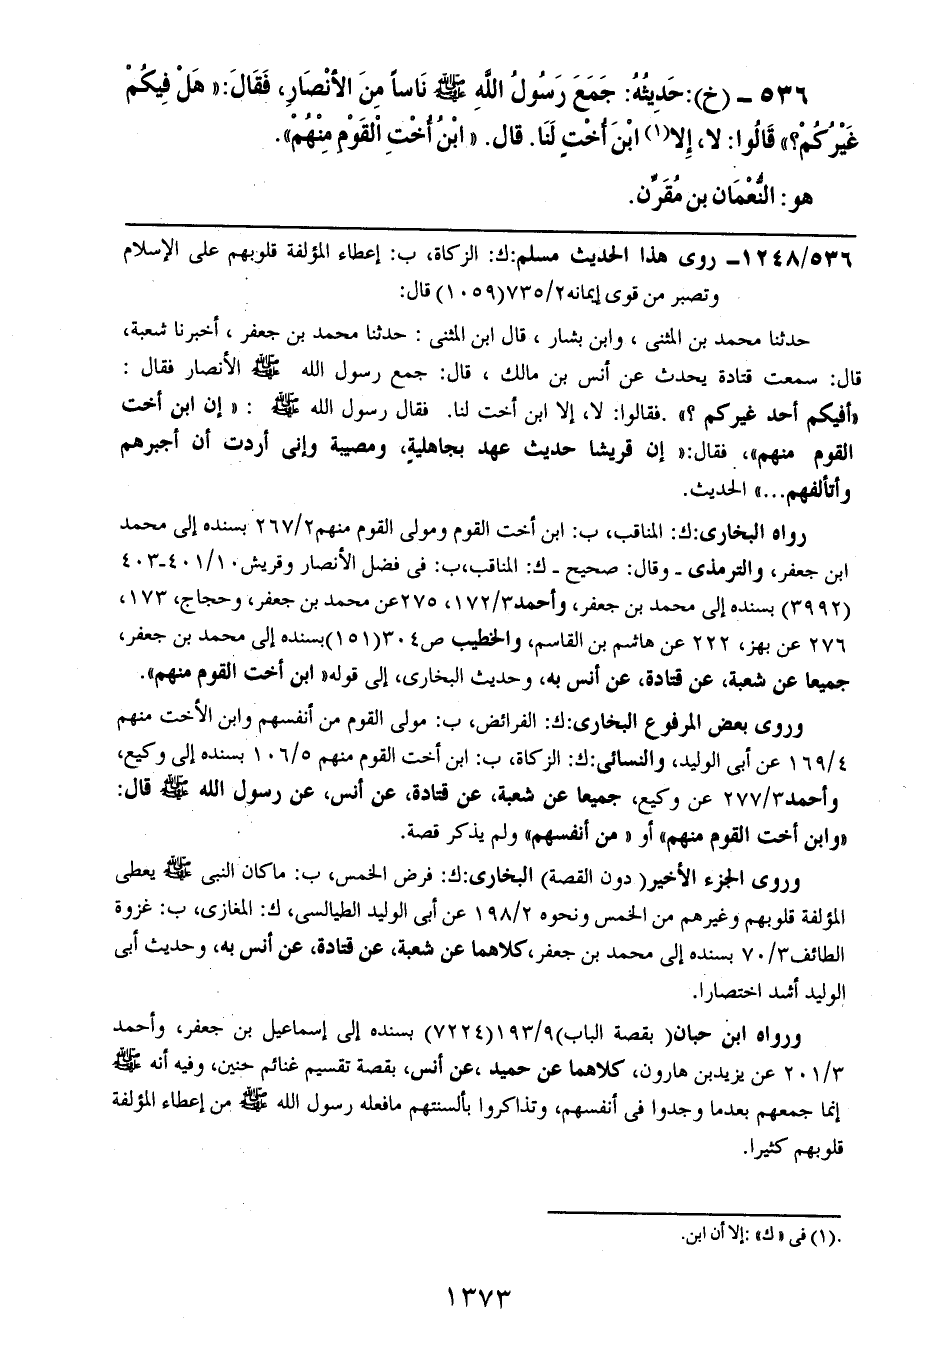 ٥٣٦ - (خ): حَدِيثُهُ: جَمَعَ رَسُولُ اللَّهِ ﷺ نَاساً مِنَ الأَنْصَارِ، فَقَالَ: « هَلْ فِيكُمْ
غَيْرُكُمْ؟» قَالُوا: لا، إِلا(١) ابْنَ أُخْتٍ لَنَا. قال. « ابْنُ أُخْتِ الْقَوْمِ مِنْهُمْ».
هو: النُّعْمَان بن مُقَرِّن.
١٢٤٨/٥٣٦ـ روى هذا الحديث مسلم:ك: الزكاة، ب: إعطاء المؤلفة قلوبهم على الإسلام
وتصبر من قوى إيمانه٧٣٥/٢(١٠٥٩) قال:
حدثنا محمد بن المثنى ، وابن بشار ، قال ابن المثنى : حدثنا محمد بن جعفر ، أخبرنا شعبة،
قال: سمعت قتادة يحدث عن أنس بن مالك ، قال: جمع رسول الله ﷺ الأنصار فقال :
«أفيكم أحد غيركم ؟» .فقالوا: لا، إلا ابن أخت لنا. فقال رسول الله ﷺ : « إن ابن أخت
القوم منهم»، فقال:« إن قريشا حديث عهد بجاهلية، ومصيبة وإنى أردت أن أجبرهم
وأتألفهم...» الحديث.
رواه البخارى:ك: المناقب، ب: ابن أخت القوم ومولى القوم منهم٢٦٧/٢ بسنده إلى محمد
ابن جعفر، والترمذى ـ وقال: صحيح ـ ك: المناقب،ب: فى فضل الأنصار وقريش٤٠١/١٠ـ٤٠٣
(٣٩٩٢) بسنده إلى محمد بن جعفر، وأحمد١٧٢/٣، ٢٧٥عن محمد بن جعفر، وحجاج، ١٧٣،
٢٧٦ عن بهز، ٢٢٢ عن هاشم بن القاسم، والخطيب ص٣٠٤(١٥١)بسنده إلى محمد بن جعفر،
جميعا عن شعبة، عن قتادة، عن أنس به، وحديث البخارى، إلى قوله« ابن أخت القوم منهم».
وروى بعض المرفوع البخارى:ك: الفرائض، ب: مولى القوم من أنفسهم وابن الأخت منهم
١٦٩/٤ عن أبى الوليد، والنسائى:ك: الزكاة، ب: ابن أخت القوم منهم ١٠٦/٥ بسنده إلى وكيع،
وأحمد٢٧٧/٣ عن وكيع، جميعا عن شعبة، عن قتادة، عن أنس، عن رسول الله ﷺ قال:
«وابن أخت القوم منهم» أو « من أنفسهم» ولم يذكر قصة.
وروى الجزء الأخير( دون القصة) البخارى:ك: فرض الخمس، ب: ماكان النبى ﷺ يعطى
المؤلفة قلوبهم وغيرهم من الخمس ونحوه ١٩٨/٢ عن أبى الوليد الطيالسى، ك: المغازى، ب: غزوة
الطائف٧٠/٣ بسنده إلى محمد بن جعفر،كلاهما عن شعبة، عن قتادة، عن أنس به، وحديث أبى
الوليد أشد اختصارا.
ورواه ابن حبان( بقصة الباب)١٩٣/٩(٧٢٢٤) بسنده إلى إسماعيل بن جعفر، وأحمد
٢٠١/٣ عن يزيدبن هارون، كلاهما عن حميد ،عن أنس، بقصة تقسيم غنائم حنين، وفيه أنه ﷺ
إنما جمعهم بعدما وجدوا فى أنفسهم، وتذاكروا بألسنتهم مافعله رسول الله ﷺ من إعطاء المؤلفة
قلوبهم كثيرا.
.(١) فى «ك» :إلا أن ابن.
١٣٧٣